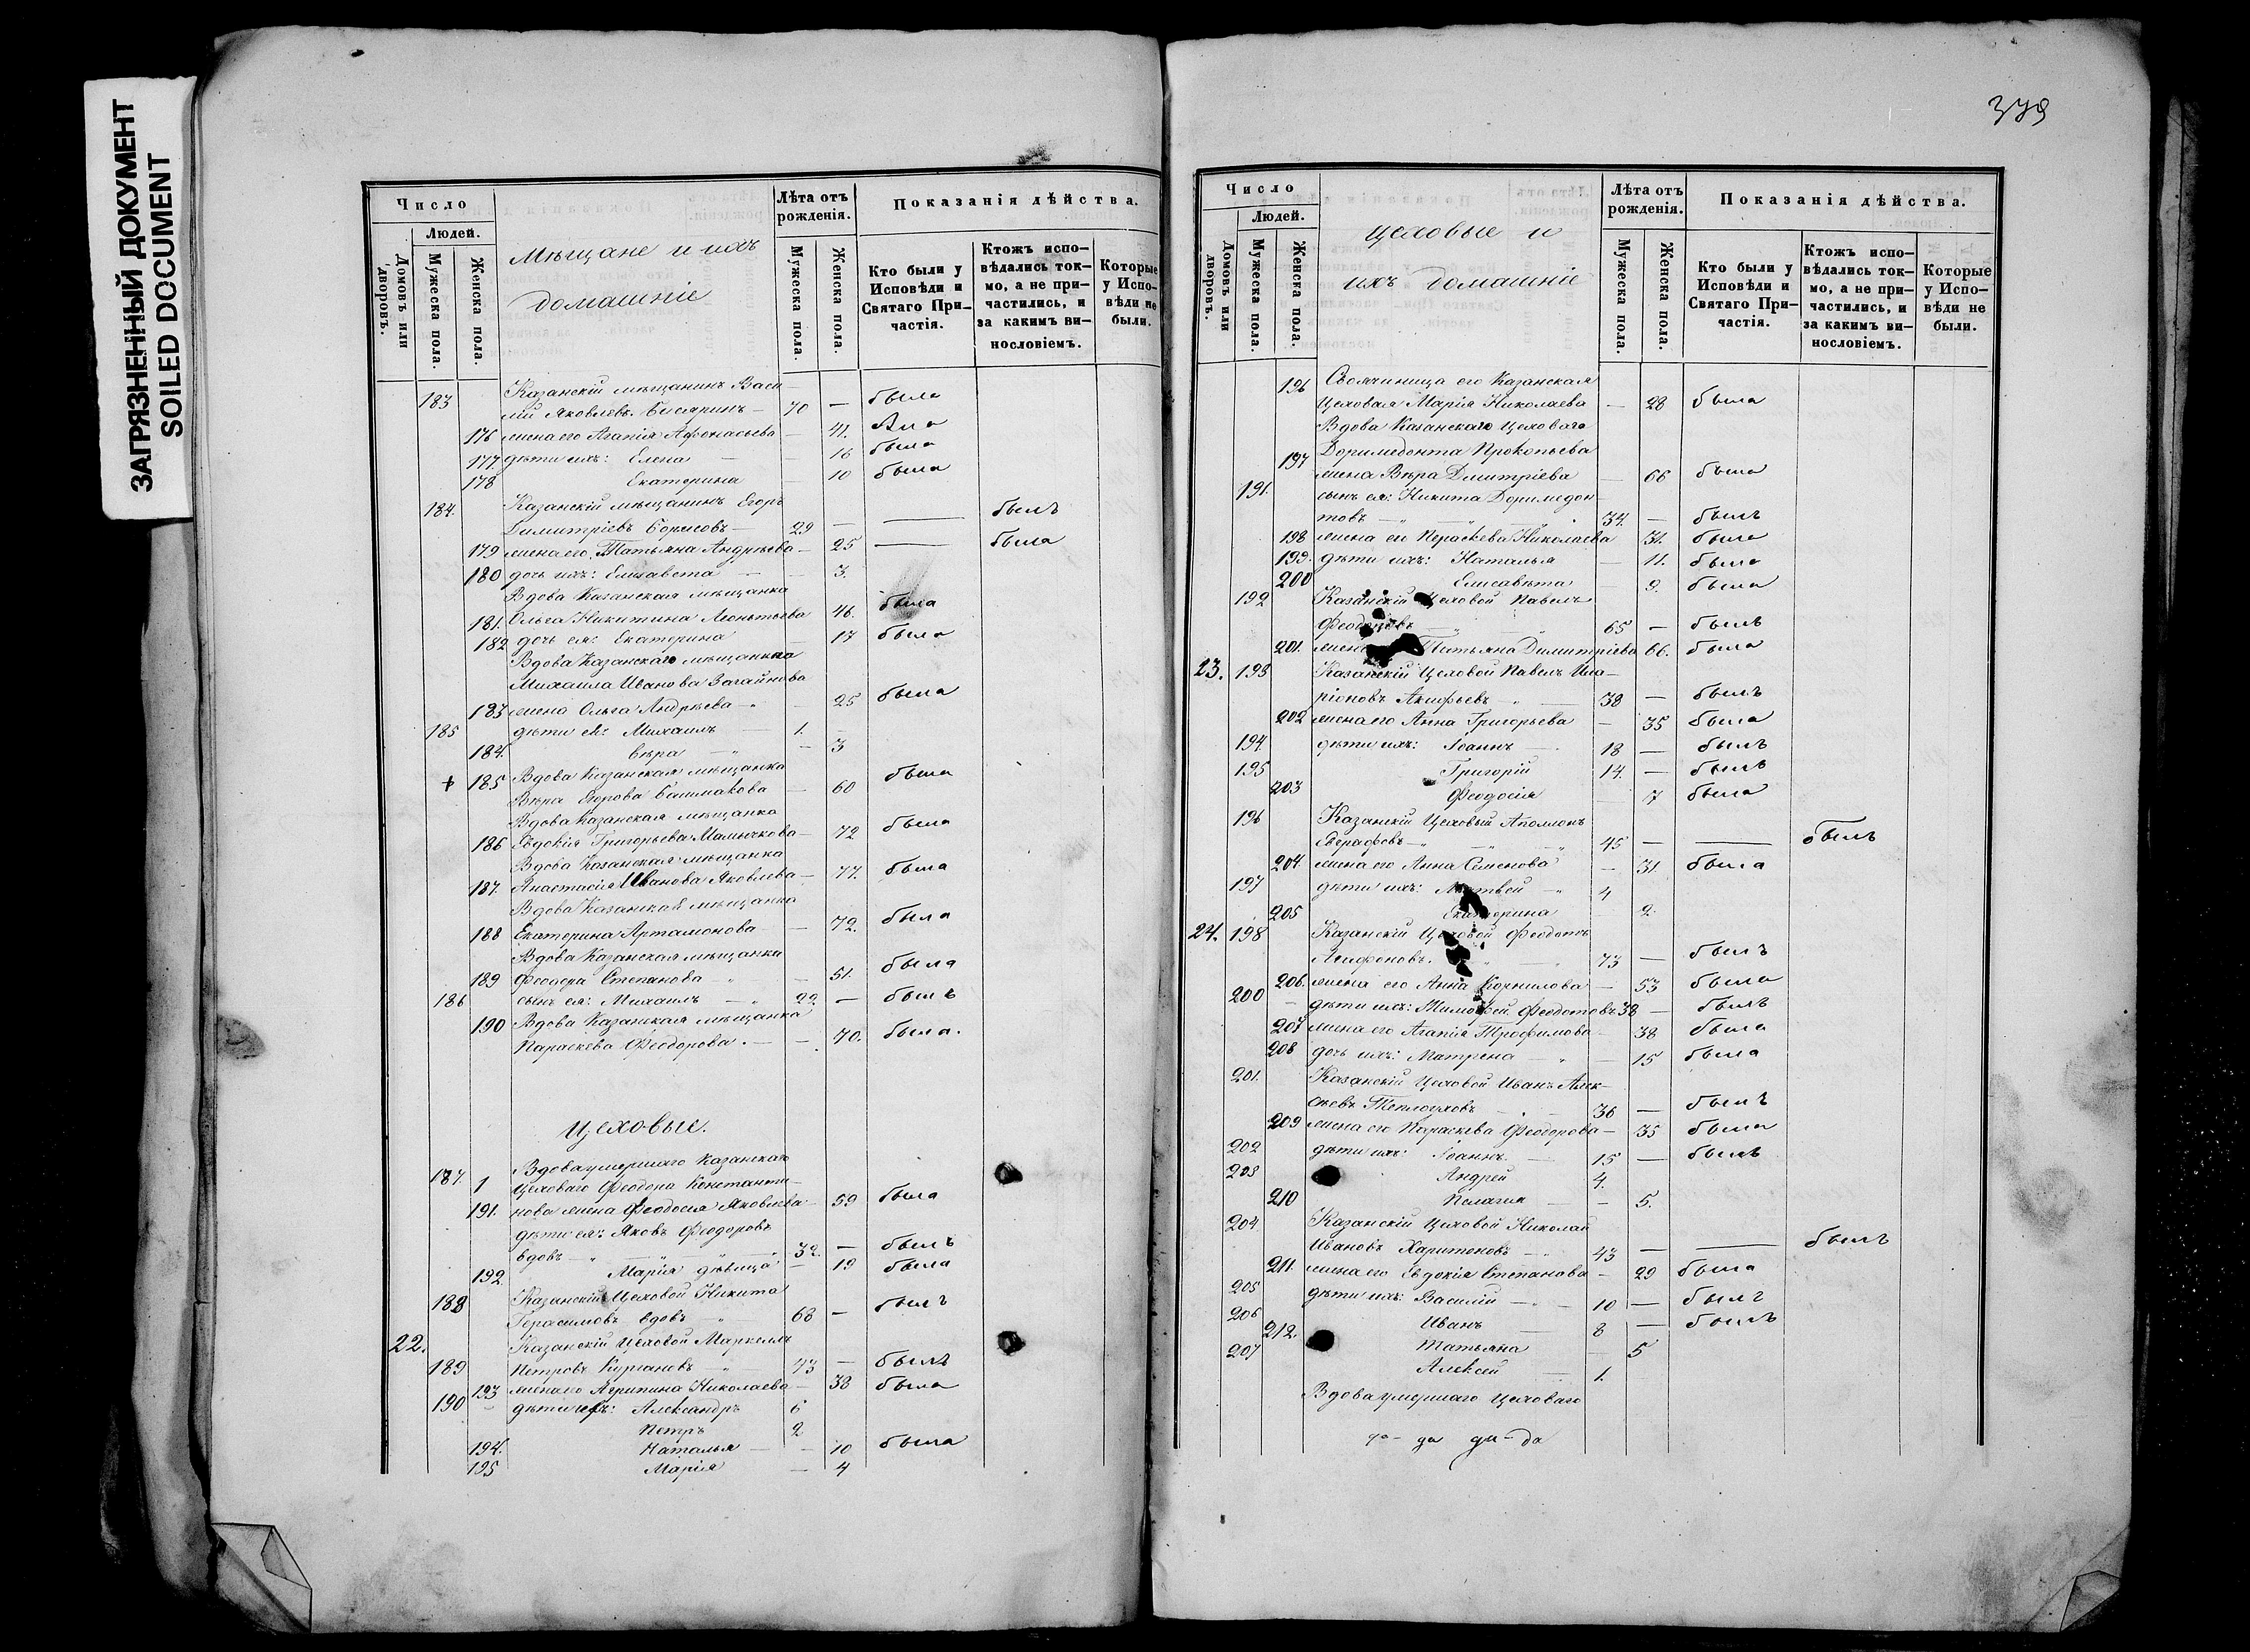 ЗАГРЯЗНЕННЫЙ ДОКУМЕНТ
SOILED DOCUMENT
Число
Людей.
Домовъ или дворовъ.
Мужеска пола.
Женска пола.
Мѣщане и ихъ
домашніе
Лѣта отъ рожденія.
Мужеска пола.
Женска пола.
Показанія дѣйства.
Кто были у Исповѣди и Святаго Причастія.
Ктожъ исповѣдались токмо, а не причастились, и за какимъ винословіемъ.
Которые у Исповѣди не были.
Казанскій мѣщанинъ Васи-
183 лій Яковлевъ 70 — была
176 жена его Агапія Афонасьева — 41.
177. дѣти ихъ: Елена — 16 была
178 Екатерина 10 была
184. Казанскій мѣщанинъ Егоръ
Димитріевъ Борисовъ — 29 — — былъ
179 жена его Татьяна Андрѣева — 25 — была
180 дочь ихъ: Елисавета — 3.
Вдова Казанская мѣщанка
181. Ольга Никитина Леонтьева 46. была
182 дочь ея: Екатерина 17 была
Вдова Казанскаго мѣщанина
Михаила Иванова Загайнова
183 жена Ольга Андрѣева — 25 была
185 дѣти ея: Михаилъ 1.
184. Вѣра — 3
185 Вдова Казанская мѣщанка
Вѣра Егорова Башмакова — 60 была
Вдова Казанская мѣщанка
186 Евдокія Григорьева Мамычкова — 72 была
Вдова Казанская мѣщанка
187. Анастасія Иванова Яковлева — 77. была
Вдова Казанская мѣщанка
188 Екатерина Артамонова — 72. была
Вдова Казанская мѣщанка
189 Феодора Степанова — 51. была
186 сынъ ея: Михаилъ — 22 — былъ
190 Вдова Казанская мѣщанка
Параскева Феодорова. — 70. была.
Цеховые.
187. 1 Вдова умершаго Казанскаго
Цеховаго Феодора Константи-
191. нова жена Феодосія Яковлева — 59 была
дѣти ея: Яковъ Феодоровъ
вдовъ — 32. — былъ
192. Марія дѣвица — 19 была
188 Казанскій Цеховой Никита
Герасимовъ вдовъ — 68 — былъ
22. Казанскій Цеховой Маркеллъ
189 Петровъ Кургановъ — 43 — былъ
193 жена его Агрипина Николаева — 38 была
190 дѣти ихъ: Александръ 6
Петръ 2
194. Наталья — 10 была
195 Марія — 4
379
Число
Людей.
Домовъ или дворовъ.
Мужеска пола.
Женска пола.
Цеховые и
ихъ домашніе
Лѣта отъ рожденія.
Мужеска пола.
Женска пола.
Показанія дѣйства.
Кто были у Исповѣди и Святаго Причастія.
Ктожъ исповѣдались токмо, а не причастились, и за какимъ винословіемъ.
Которые у Исповѣди не были.
196 его Казанская
Цеховая Марія Николаева — 28 была
Вдова Казанскаго Цеховаго
197 Доримедонта Прокопьева
жена Вѣра Дмитріева — 66 была
191. сынъ ея: Никита Доримедон-
товъ — 34. — былъ
198 жена его Параскева Николаева 31. была
199. дѣти ихъ: Наталья — 11. была
200 Елисавѣта 9. была
192 Казанскій Цеховой Павелъ
65 — былъ
201. жена Татьяна Димитріева 66. была
23. 193 Казанскій Цеховой Павелъ Ила-
ріоновъ Акифьевъ — 38 — былъ
202 жена его Анна Григорьева — 35 была
194. дѣти ихъ: Іоаннъ 18 — былъ
195 Григорій 14. — былъ
203 Феодосія 7 была
196 Казанскій Цеховый Аполлонъ
Еврафовъ — 45 — — былъ
204. жена его Анна Семенова — 31. была
197 дѣти ихъ: Матвей — 4
205 Екатерина 2.
24. 198 Казанскій Цеховой Феодотъ
73 — былъ
206. жена его Анна Корнилова — 53 была
200 — дѣти ихъ: Тимофей Феодотовъ 38 — былъ
207 жена его Агапія Трофимова — 38 была
208 дочь ихъ: Матрена — 15 была
201. Казанскій Цеховой Иванъ Алек-
сѣевъ Теплоуховъ — 36 — былъ
209 жена его Параскева Феодорова — 35 была
202 дѣти ихъ: Іоаннъ 15 — былъ
203 Андрей 4.
210 Пелагия — 5.
204 Казанскій Цеховой Николай
Ивановъ Харитоновъ — 43 — — былъ
211. жена его Евдокія Степанова — 29 была
205 дѣти ихъ: Василій — 10 — былъ
206 Иванъ 8 — былъ
212. Татьяна — 5
207 Алексей — 1.
Вдова умершаго Цеховаго